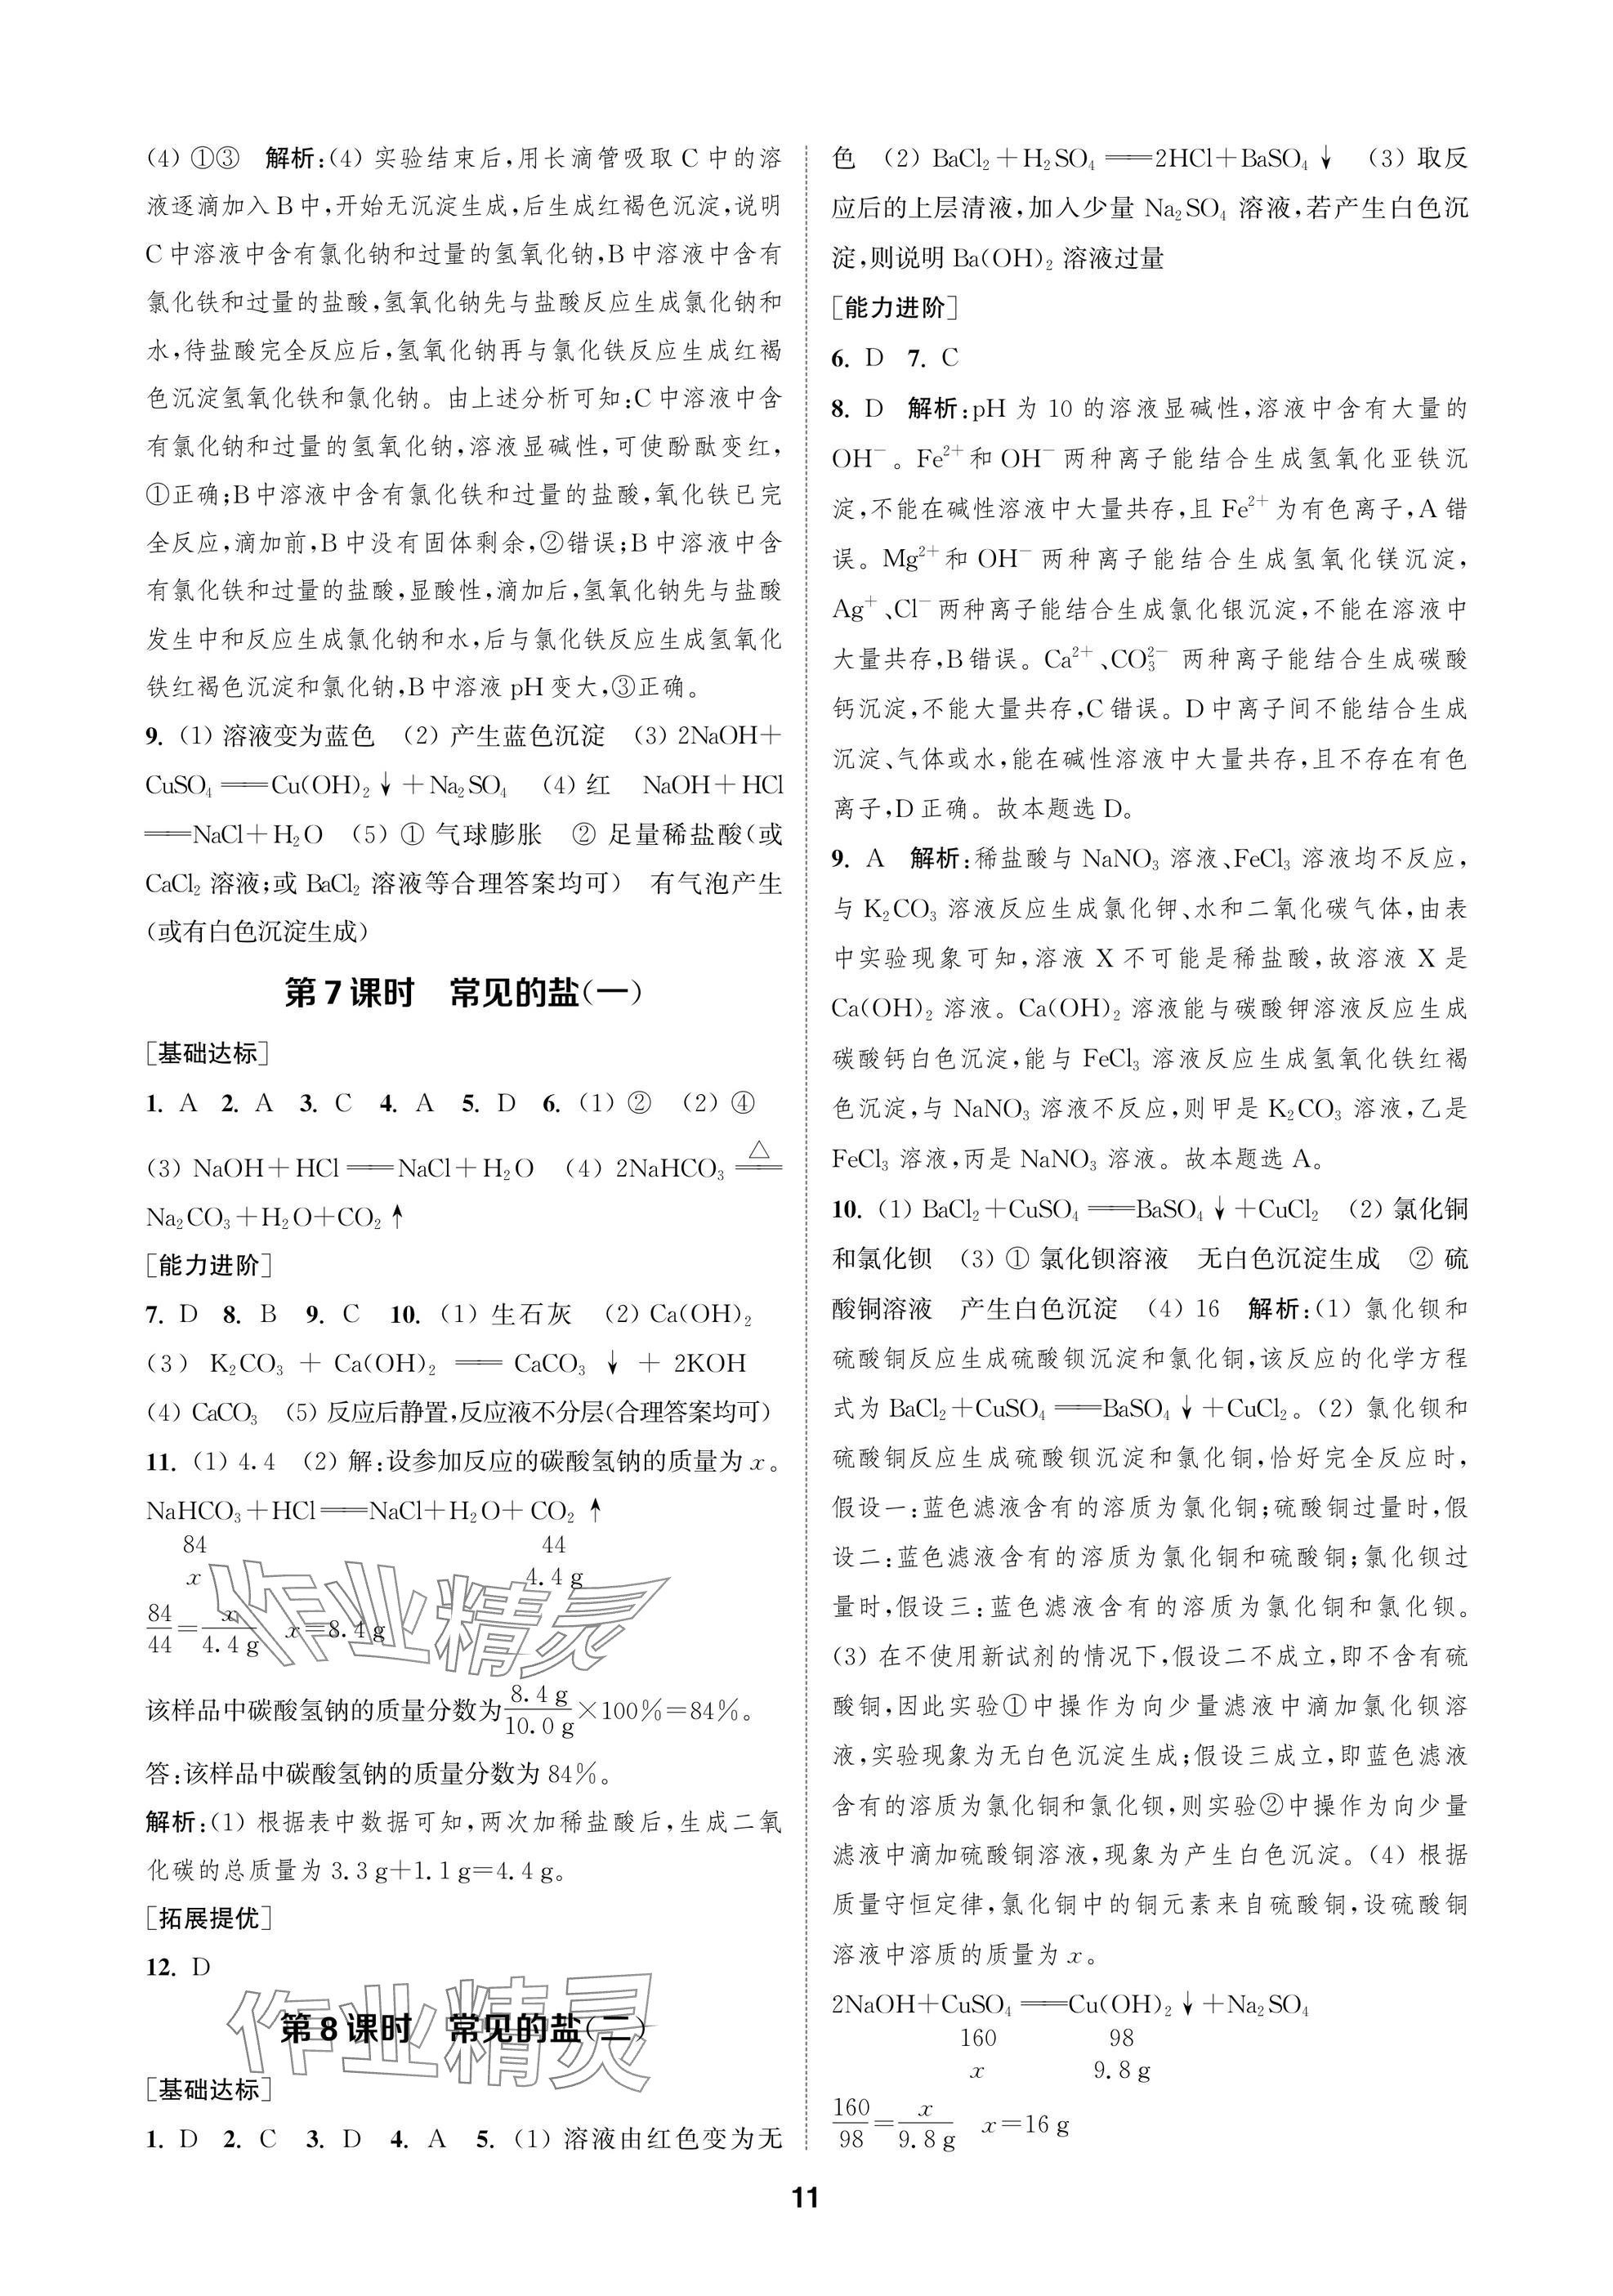 (4) ①③　解析:(4) 实验结束后,用长滴管吸取 C 中的溶
液逐滴加入 B 中,开始无沉淀生成,后生成红褐色沉淀,说明
C 中溶液中含有氯化钠和过量的氢氧化钠,B 中溶液中含有
氯化铁和过量的盐酸,氢氧化钠先与盐酸反应生成氯化钠和
水,待盐酸完全反应后,氢氧化钠再与氯化铁反应生成红褐
色沉淀氢氧化铁和氯化钠。由上述分析可知:C 中溶液中含
有氯化钠和过量的氢氧化钠,溶液显碱性,可使酚酞变红,
①正确;B 中溶液中含有氯化铁和过量的盐酸,氧化铁已完
全反应,滴加前,B 中没有固体剩余,②错误;B 中溶液中含
有氯化铁和过量的盐酸,显酸性,滴加后,氢氧化钠先与盐酸
发生中和反应生成氯化钠和水,后与氯化铁反应生成氢氧化
铁红褐色沉淀和氯化钠,B 中溶液 pH 变大,③正确。
9. (1) 溶液变为蓝色　(2) 产生蓝色沉淀　(3) 2NaOH＋
CuSO₄══Cu(OH)₂↓＋Na₂SO₄　(4) 红　NaOH＋HCl
══NaCl＋H₂O　(5) ① 气球膨胀　② 足量稀盐酸(或
CaCl₂ 溶液;或 BaCl₂ 溶液等合理答案均可)　有气泡产生
(或有白色沉淀生成)
第 7 课时　常见的盐(一)
[基础达标]
1. A　2. A　3. C　4. A　5. D　6. (1) ②　(2) ④
(3) NaOH＋HCl══NaCl＋H₂O　(4) 2NaHCO₃ ══△
Na₂CO₃＋H₂O＋CO₂↑
[能力进阶]
7. D　8. B　9. C　10. (1) 生石灰　(2) Ca(OH)₂
(3) K₂CO₃ ＋ Ca(OH)₂ ══ CaCO₃ ↓ ＋ 2KOH
(4) CaCO₃　(5) 反应后静置,反应液不分层(合理答案均可)
11. (1) 4.4　(2) 解:设参加反应的碳酸氢钠的质量为 x。
NaHCO₃＋HCl══NaCl＋H₂O＋CO₂↑
84　44
x　4.4 g
84/44＝x/4.4 g　x＝8.4 g
该样品中碳酸氢钠的质量分数为 8.4 g/10.0 g×100%＝84%。
答:该样品中碳酸氢钠的质量分数为 84%。
解析:(1) 根据表中数据可知,两次加稀盐酸后,生成二氧
化碳的总质量为 3.3 g＋1.1 g＝4.4 g。
[拓展提优]
12. D
第 8 课时　常见的盐(二)
[基础达标]
1. D　2. C　3. D　4. A　5. (1) 溶液由红色变为无
色　(2) BaCl₂＋H₂SO₄══2HCl＋BaSO₄↓　(3) 取反
应后的上层清液,加入少量 Na₂SO₄ 溶液,若产生白色沉
淀,则说明 Ba(OH)₂ 溶液过量
[能力进阶]
6. D　7. C
8. D　解析:pH 为 10 的溶液显碱性,溶液中含有大量的
OH⁻。Fe²⁺和 OH⁻ 两种离子能结合生成氢氧化亚铁沉
淀,不能在碱性溶液中大量共存,且 Fe²⁺ 为有色离子,A 错
误。Mg²⁺和 OH⁻ 两种离子能结合生成氢氧化镁沉淀,
Ag⁺、Cl⁻两种离子能结合生成氯化银沉淀,不能在溶液中
大量共存,B 错误。Ca²⁺、CO₃²⁻ 两种离子能结合生成碳酸
钙沉淀,不能大量共存,C 错误。D 中离子间不能结合生成
沉淀、气体或水,能在碱性溶液中大量共存,且不存在有色
离子,D 正确。故本题选 D。
9. A　解析:稀盐酸与 NaNO₃ 溶液、FeCl₃ 溶液均不反应,
与 K₂CO₃ 溶液反应生成氯化钾、水和二氧化碳气体,由表
中实验现象可知,溶液 X 不可能是稀盐酸,故溶液 X 是
Ca(OH)₂ 溶液。Ca(OH)₂ 溶液能与碳酸钾溶液反应生成
碳酸钙白色沉淀,能与 FeCl₃ 溶液反应生成氢氧化铁红褐
色沉淀,与 NaNO₃ 溶液不反应,则甲是 K₂CO₃ 溶液,乙是
FeCl₃ 溶液,丙是 NaNO₃ 溶液。故本题选 A。
10. (1) BaCl₂＋CuSO₄══BaSO₄↓＋CuCl₂　(2) 氯化铜
和氯化钡　(3) ① 氯化钡溶液　无白色沉淀生成　② 硫
酸铜溶液　产生白色沉淀　(4) 16　解析:(1) 氯化钡和
硫酸铜反应生成硫酸钡沉淀和氯化铜,该反应的化学方程
式为 BaCl₂＋CuSO₄══BaSO₄↓＋CuCl₂。(2) 氯化钡和
硫酸铜反应生成硫酸钡沉淀和氯化铜,恰好完全反应时,
假设一:蓝色滤液含有的溶质为氯化铜;硫酸铜过量时,假
设二:蓝色滤液含有的溶质为氯化铜和硫酸铜;氯化钡过
量时,假设三:蓝色滤液含有的溶质为氯化铜和氯化钡。
(3) 在不使用新试剂的情况下,假设二不成立,即不含有硫
酸铜,因此实验①中操作为向少量滤液中滴加氯化钡溶
液,实验现象为无白色沉淀生成;假设三成立,即蓝色滤液
含有的溶质为氯化铜和氯化钡,则实验②中操作为向少量
滤液中滴加硫酸铜溶液,现象为产生白色沉淀。(4) 根据
质量守恒定律,氯化铜中的铜元素来自硫酸铜,设硫酸铜
溶液中溶质的质量为 x。
2NaOH＋CuSO₄══Cu(OH)₂↓＋Na₂SO₄
160　98
x　9.8 g
160/98＝x/9.8 g　x＝16 g
11
作业精灵
作业精灵